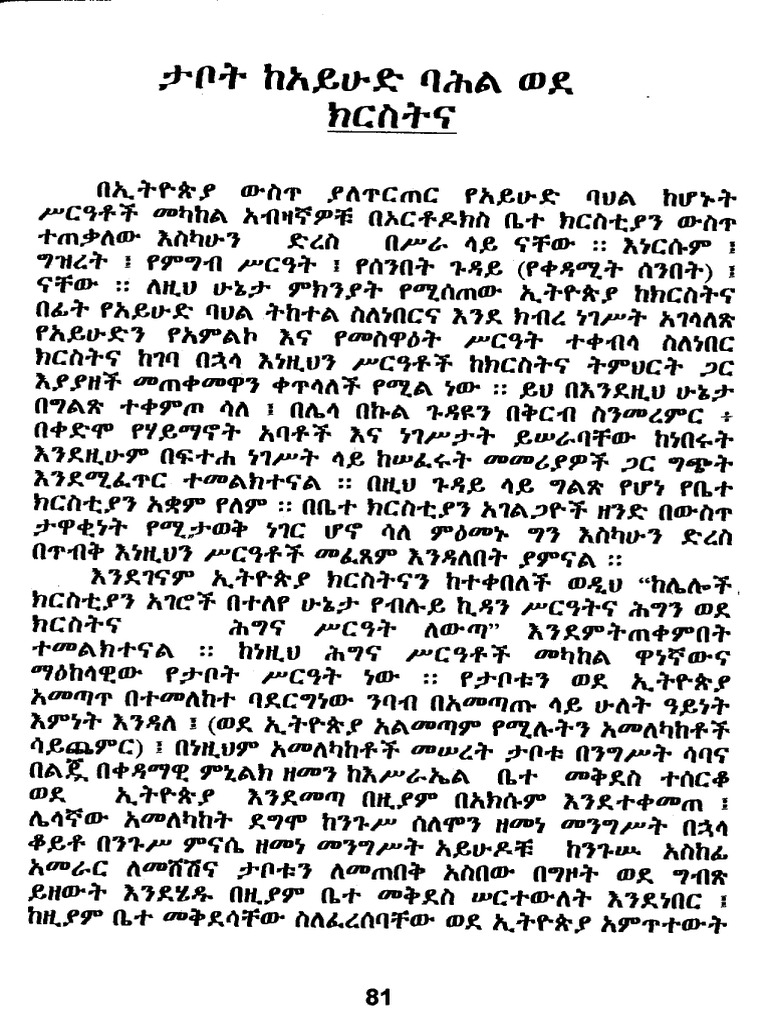 ታቦት ከአይሁድ ባሕል ወደ
ክርስትና
በኢትዮጵያ ውስጥ ያለጥርጠር የአይሁድ ባህል ከሆኑት
ሥርዓቶች መካከል አብዛኛዎቹ በኦርቶዶክስ ቤተ ክርስቲያን ውስጥ
ተጠቃለው እስካሁን ድረስ በሥራ ላይ ናቸው ፡፡ እነርሱም ፤
ግዝረት ፤ የምግብ ሥርዓት ፤ የሰንበት ጉዳይ (የቀዳሚት ሰንበት) ፤
ናቸው ፡፡ ለዚህ ሁኔታ ምክንያት የሚሰጠው ኢትዮጵያ ከክርስትና
በፊት የአይሁድ ባህል ትከተል ስለነበርና እንደ ክብረ ነገሥት አገላለጽ
የአይሁድን የአምልኮ እና የመስዋዕት ሥርዓት ተቀብላ ስለነበር
ክርስትና ከገባ በኋላ እነዚህን ሥርዓቶች ከክርስትና ትምህርት ጋር
እያያዘች መጠቀመዋን ቀጥላለች የሚል ነው ፡፡ ይህ በእንደዚህ ሁኔታ
በግልጽ ተቀምጦ ሳለ ፤ በሌላ በኩል ጉዳዩን በቅርብ ስንመረምር ÷
በቀድሞ የሃይማኖት አባቶች እና ነገሥታት ይሠራባቸው ከነበሩት
እንደዚሁም በፍተሐ ነገሥት ላይ ከሠፈሩት መመሪያዎች ጋር ግጭት
እንደሚፈጥር ተመልክተናል ፡፡ በዚህ ጉዳይ ላይ ግልጽ የሆነ የቤተ
ክርስቲያን አቋም የለም ፡፡ በቤተ ክርስቲያን አገልጋዮች ዘንድ በውስጥ
ታዋቂነት የሚታወቅ ነገር ሆኖ ሳለ ምዕመኑ ግን እስካሁን ድረስ
በጥብቅ እነዚህን ሥርዓቶች መፈጸም እንዳለበት ያምናል ፡፡
እንደገናም ኢትዮጵያ ክርስትናን ከተቀበለች ወዲህ “ከሌሎች
ክርስቲያን አገሮች በተለየ ሁኔታ የብሉይ ኪዳን ሥርዓትና ሕግን ወደ
ክርስትና ሕግና ሥርዓት ለውጣ” እንደምትጠቀምበት
ተመልክተናል ፡፡ ከነዚህ ሕግና ሥርዓቶች መካከል ዋነኛውና
ማዕከላዊው የታቦት ሥርዓት ነው ፡፡ የታቦቱን ወደ ኢትዮጵያ
አመጣጥ በተመለከተ ባደርግነው ንባብ በአመጣጡ ላይ ሁለት ዓይነት
እምነት እንዳለ ፤ (ወደ ኢትዮጵያ አልመጣም የሚሉትን አመለካከቶች
ሳይጨምር) ፤ በነዚህም አመለካከቶች መሠረት ታቦቱ በንግሥት ሳባና
በልጇ በቀዳማዊ ምኒልክ ዘመን ከእሥራኤል ቤተ መቅደስ ተሰርቆ
ወደ ኢትዮጵያ እንደመጣ በዚያም በአክሱም እንደተቀመጠ ፤
ሌላኛው አመለካከት ደግሞ ከንጉሥ ሰለሞን ዘመነ መንግሥት በኋላ
ቆይቶ በንጉሥ ምናሴ ዘመነ መንግሥት አይሁዶቹ ከንጉሡ አስከፊ
አመራር ለመሸሽና ታቦቱን ለመጠበቅ አስበው በግዞት ወደ ግብጽ
ይዘውት እንደሄዱ በዚያም ቤተ መቅደስ ሠርተውለት እንደነበር ፤
ከዚያም ቤተ መቅደሳቸው ስለፈረሰባቸው ወደ ኢትዮጵያ አምጥተውት
81